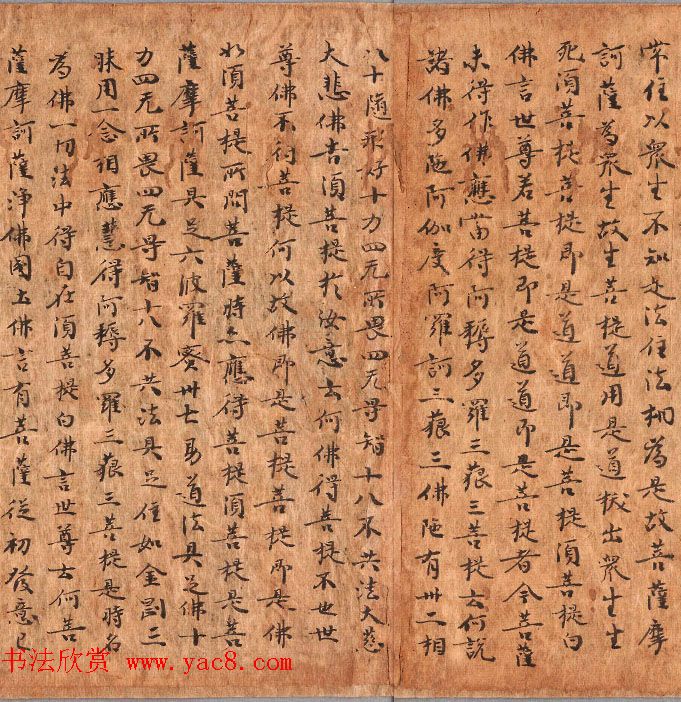 常住以衆生不知是法住法相為是故菩薩摩
訶薩為衆生故生菩提道用是道拔出衆生生
死須菩提菩提即是道道即是菩提須菩提白
佛言世尊若菩提即是道道即是菩提者今菩薩
未得作佛應當得阿耨多羅三藐三菩提云何說
諸佛多陁阿伽度阿羅訶三藐三佛陁有卅二相
八十隨形好十力四无所畏四无㝵智十八不共法大慈
大悲佛告須菩提於汝意云何佛得菩提不世
尊佛不得菩提何以故佛即是菩提菩提即是佛
如須菩提所問菩薩時亦應得菩提須菩提是菩
薩摩訶薩具足六波羅蜜卅七助道法具足佛十
力四无所畏四无㝵智十八不共法具足住如金剛三
昧用一念相應慧得阿耨多羅三藐三菩提是時名
為佛一切法中得自在須菩提白佛言世尊云何菩
薩摩訶薩淨佛國土佛言有菩薩從初發意已
书法欣赏 www.yac8.com